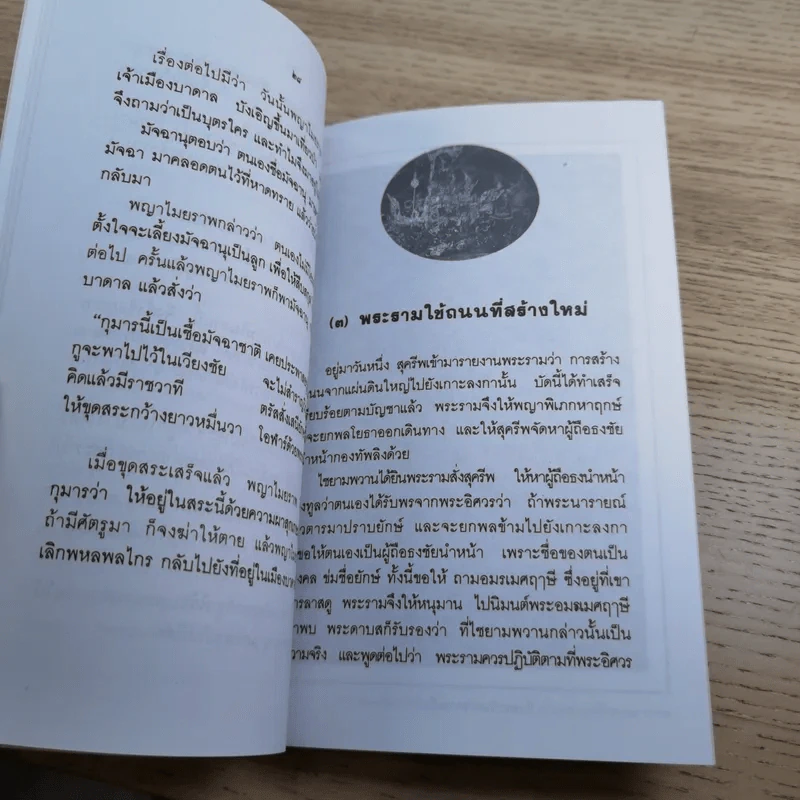 ๒๘
เรื่องต่อไปมีว่า วันนั้นพญาไมยราพ
เจ้าเมืองบาดาล บังเอิญขึ้นมาเที่ยว
จึงถามว่าเป็นบุตรใคร และทำไม
มัจฉานุตอบว่า ตนเองชื่อมัจฉานุ
มัจฉา มาคลอดตนไว้ที่หาดทราย แล้ว
กลับมา
พญาไมยราพกล่าวว่า ตนเองไม่มี
ตั้งใจจะเลี้ยงมัจฉานุเป็นลูก เพื่อให้สืบ
ต่อไป ครั้นแล้วพญาไมยราพก็พามัจฉานุ
บาดาล แล้วสั่งว่า
“กุมารนี้เป็นเชื้อมัจฉาชาติ เคย
กูจะพาไปไว้ในเวียงชัย จะไม่
คิดแล้วมีราชวาที ตรัสสั่ง
ให้ขุดสระกว้างยาวหมื่นวา โอฬาร์ด้วย
เมื่อขุดสระเสร็จแล้ว พญาไมยราพ
กุมารว่า ให้อยู่ในสระนี้ด้วยความผาสุก
ถ้ามีศัตรูมา ก็จงฆ่าให้ตาย แล้วพญา
เลิกพหลพลไกร กลับไปยังที่อยู่ในเมือง
(๓) พระรามใช้ถนนที่สร้างใหม่
อยู่มาวันหนึ่ง สุครีพเข้ามารายงานพระรามว่า การสร้าง
นนจากแผ่นดินใหญ่ไปยังเกาะลงกานั้น บัดนี้ได้ทำเสร็จ
รียบร้อยตามบัญชาแล้ว พระรามจึงให้พญาพิเภกหาฤกษ์
จะยกพลโยธาออกเดินทาง และให้สุครีพจัดหาผู้ถือธงชัย
ำหน้ากองทัพลิงด้วย
ไชยามพวานได้ยินพระรามสั่งสุครีพ ให้หาผู้ถือธงนำหน้า
งทูลว่าตนเองได้รับพรจากพระอิศวรว่า ถ้าพระนารายณ์
วตารมาปราบยักษ์ และจะยกพลข้ามไปยังเกาะลงกา
ขอให้ตนเองเป็นผู้ถือธงชัยนำหน้า เพราะชื่อของตนเป็น
งคล ข่มชื่อยักษ์ ทั้งนี้ขอให้ ถามอมรเมศฤๅษี ซึ่งอยู่ที่เขา
กรลาสดู พระรามจึงให้หนุมาน ไปนิมนต์พระอมรเมศฤๅษี
าพบ พระดาบสก็รับรองว่า ที่ไชยามพวานกล่าวนั้นเป็น
วามจริง และพูดต่อไปว่า พระรามควรปฏิบัติตามที่พระอิศวร